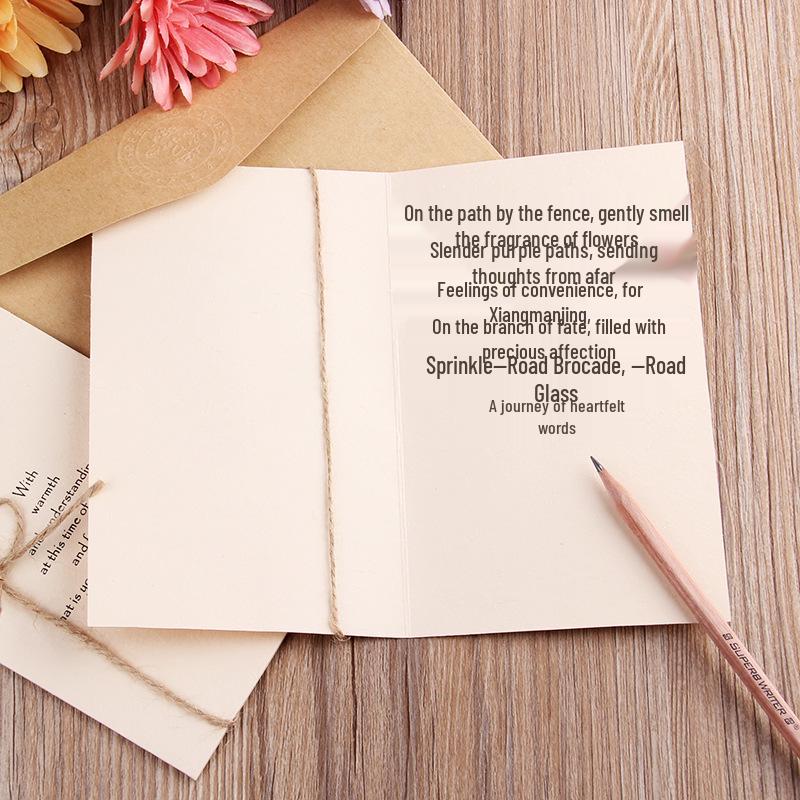 On the path by the fence, gently smell
the fragrance of flowers
Slender purple paths, sending
thoughts from afar
Feelings of convenience, for
Xiangmanjing,
On the branch of fate, filled with
precious affection
Sprinkle—Road Brocade, —Road
Glass
A journey of heartfelt
words
With
warmth
and understanding
at this time of
and
SUPERB WRITER